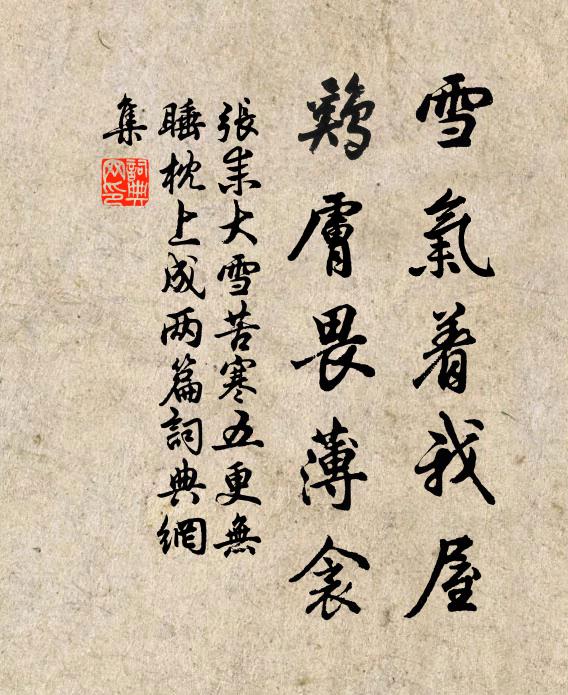 雪氣着我屋
鷄膚畏薄衾
張耒大雪苦寒五更無
睡枕上成两篇詞典網
集
詞典
网印